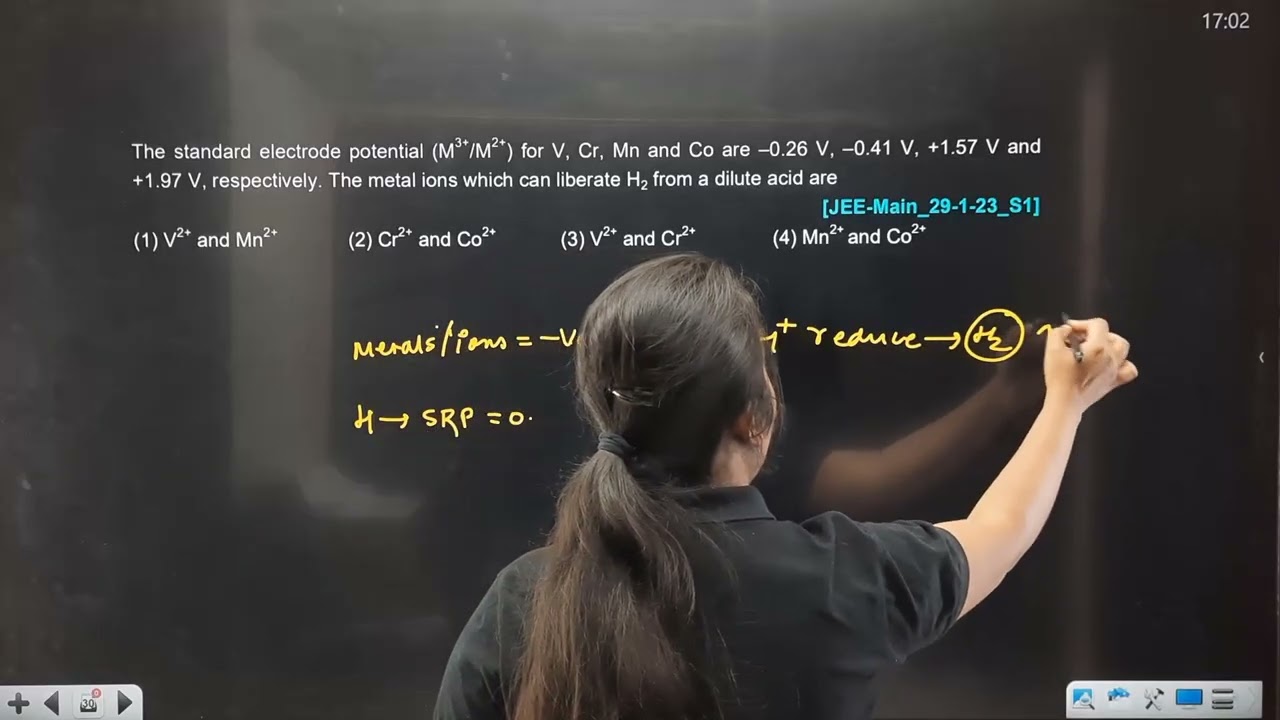 17:02
The standard electrode potential (M³⁺/M²⁺) for V, Cr, Mn and Co are –0.26 V, –0.41 V, +1.57 V and
+1.97 V, respectively. The metal ions which can liberate H₂ from a dilute acid are
[JEE-Main_29-1-23_S1]
(1) V²⁺ and Mn²⁺ (2) Cr²⁺ and Co²⁺ (3) V²⁺ and Cr²⁺ (4) Mn²⁺ and Co²⁺
Metals/ions = –V reduce → H₂
H → SRP = 0.
30